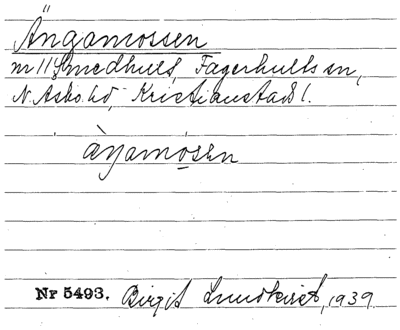 Ängamossen
nr 11 Smedhult, Fagerhults sn,
N. Åsbo hd, Kristianstads l.
àŋamósen
Nr 5493. Birgit Lundkvist, 1939